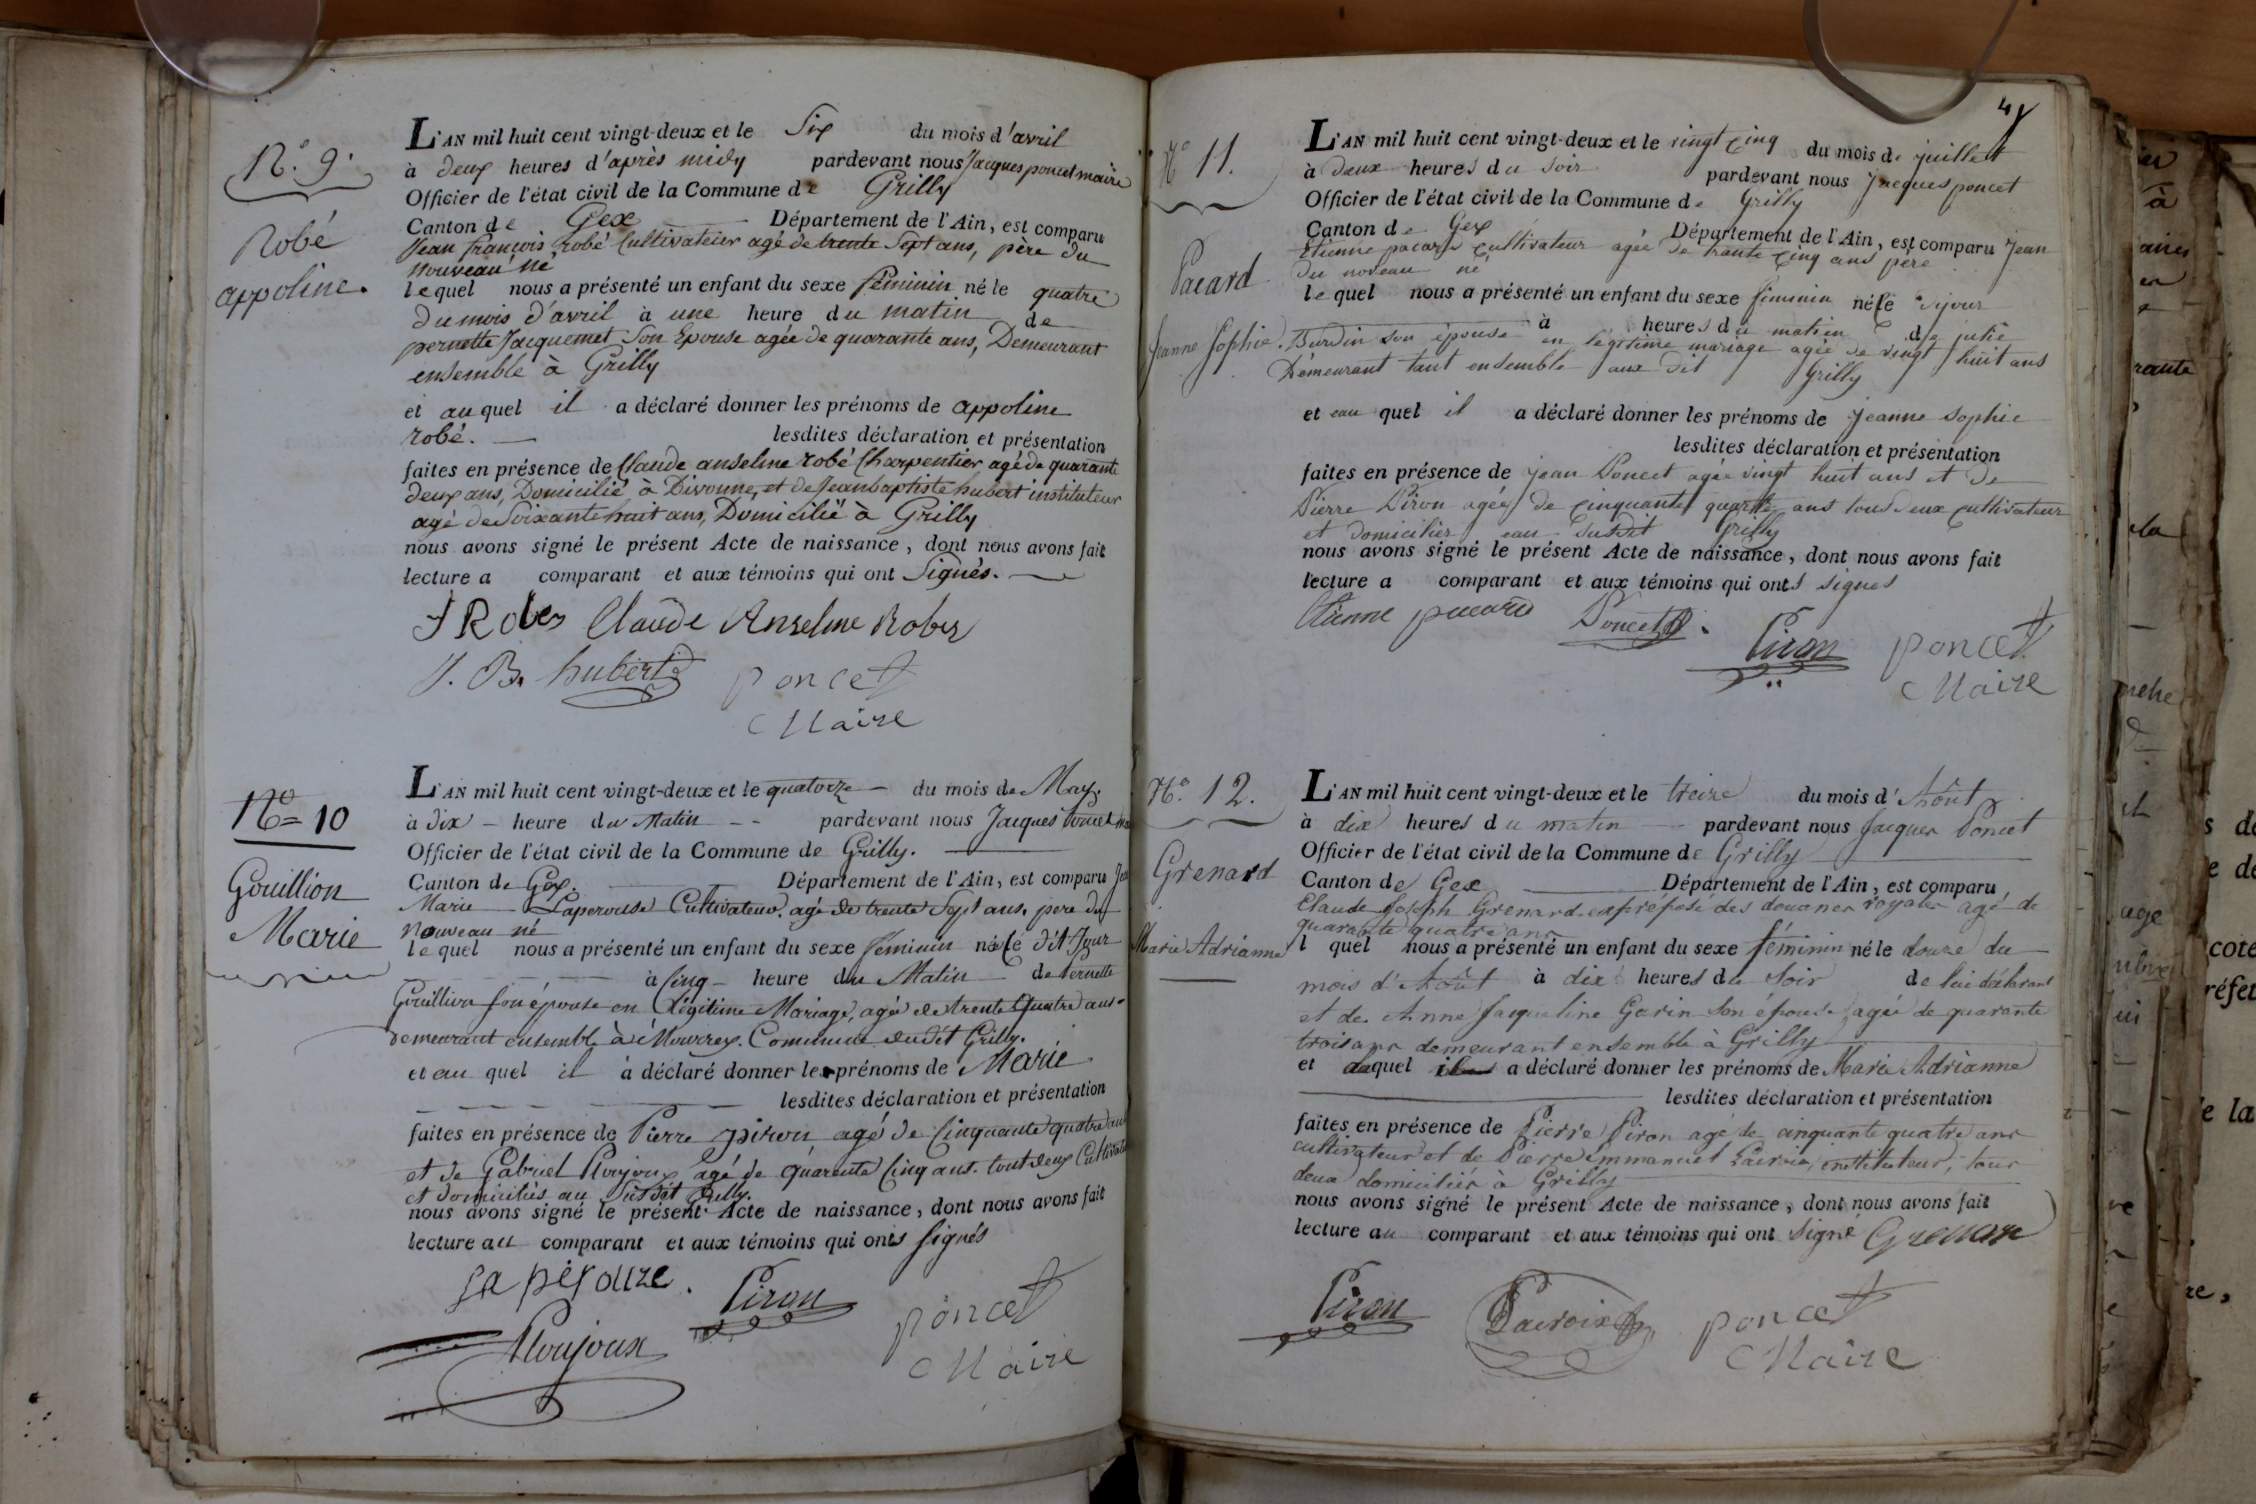 N.º 9.
Robé
appoline.
L'AN mil huit cent vingt-deux et le Six du mois d'avril
à deux heures d'après midy pardevant nous Jacques poncet maire
Officier de l'état civil de la Commune de Grilly
Canton de Gex Département de l'Ain, est comparu
Jean françois robé Cultivateur agé de trente Sept ans, père du
nouveau né
lequel nous a présenté un enfant du sexe féminin né le quatre
du mois d'avril à une heure du matin de
pernette Jacquemet Son Epouse agée de quarante ans, Demeurant
ensemble à Grilly
et auquel il a déclaré donner les prénoms de appoline
robé. lesdites déclaration et présentation
faites en présence de Claude anselme robé Charpentier agé de quarante
deux ans, Domicilié à Divonne, et de Jean baptiste hubert instituteur
agé de Soixante huit ans, Domicilié à Grilly
nous avons signé le présent Acte de naissance, dont nous avons fait
lecture a comparant et aux témoins qui ont Signés.
Claude Anselme Robez
J. B. hubert poncet
Maire
Nº 10
Gouillion
Marie
L'AN mil huit cent vingt-deux et le quatorze du mois de May.
à dix heure du Matin pardevant nous Jacques Poncet
Officier de l'état civil de la Commune de Grilly.
Canton de Gex. Département de l'Ain, est comparu
Marie Laperouse Cultivateur. agé de trente Sept ans. pere du
Nouveau né
lequel nous a présenté un enfant du sexe féminin né le dit Jour
à Cinq heure du Matin de Pernette
Gouillion son épouse en Légitime Mariage, agée de trente Quatre ans
demeurant ensemble à Mourex. Commune dudit Grilly.
et au quel il à déclaré donner les prénoms de Marie
lesdites déclaration et présentation
faites en présence de Pierre piron agé de Cinquante quatre ans
et de Gabriel Roujoux agé de quarente Cinq ans. tout deux
et domiciliés au Susdit Grilly.
nous avons signé le présent Acte de naissance, dont nous avons fait
lecture au comparant et aux témoins qui onts signés
la pérouze. Piron
Roujoux poncet
Maire
4
Nº 11.
Pacard
Jeanne Sophie.
L'AN mil huit cent vingt-deux et le vingt cinq du mois de juillett
à deux heures du soir pardevant nous Jacques poncet
Officier de l'état civil de la Commune de Grilly
Canton de Gex Département de l'Ain, est comparu Jean
Etienne pacard cultivateur agée de trante cinq ans père
du noveau né
le quel nous a présenté un enfant du sexe feminin né le
à heures du matin de julie
Burdin son épouse en légitime mariage agée de vingt huit ans
Démeurant tant ensemble aux dit Grilly
et eau quel il a déclaré donner les prénoms de Jeanne Sophie
lesdites déclaration et présentation
faites en présence de jean Poncet agée vingt huit ans et de
Pierre Piron agée de cinquante quartre ans tous deux cultivateur
et domicilier eau susdit Grilly
nous avons signé le présent Acte de naissance, dont nous avons fait
lecture a comparant et aux témoins qui onts signes
Etienne pacard Poncet Piron poncet
Maire
Nº. 12.
Grenard
Marie Adrianne
L'AN mil huit cent vingt-deux et le treize du mois d'Août
à dix heures du matin pardevant nous Jacques Poncet
Officier de l'état civil de la Commune de Grilly
Canton de Gex Département de l'Ain, est comparu
Claude Joseph Grenard ex préposé des douanes royales agé de
quarante quatre ans
l quel nous a présenté un enfant du sexe féminin né le douze du
mois d'Août à dix heures du Soir de lui déclarant
et de Anne Jacqueline Garin son épouse agée de quarante
trois ans demeurant ensemble à Grilly
et auquel il a déclaré donner les prénoms de Marie Adrianne
lesdites déclaration et présentation
faites en présence de Pierre Piron agé de cinquante quatre ans
cultivateur et de Pierre Emmanuel Lacroix, instituteur, tous
deux domiciliés à Grilly
nous avons signé le présent Acte de naissance, dont nous avons fait
lecture au comparant et aux témoins qui ont signé Grenard
Piron Lacroix poncet
Maire